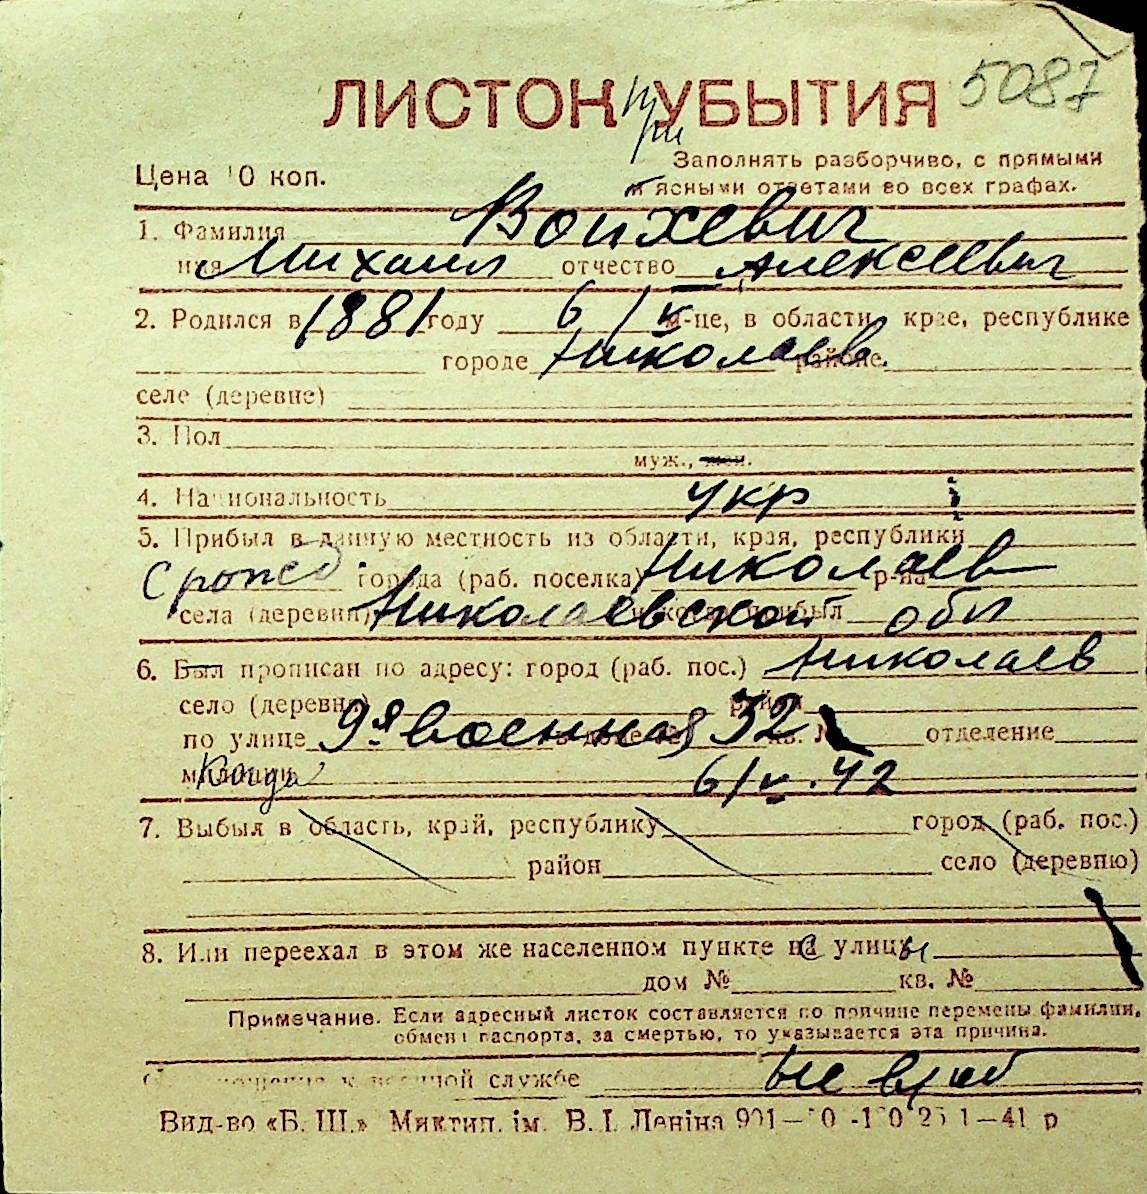 5087
ЛИСТОК при УБЫТИЯ
Цена 10 коп.
Заполнять разборчиво, с прямыми
и ясными ответами во всех графах.
1. Фамилия Войхевич
имя Михаил отчество Алексеевич
2. Родился в 1881 году 6/V м-це, в области, крае, республике
городе Николаев районе
селе (деревне)
3. Пол
муж., жен.
4. Национальность укр
5. Прибыл в данную местность из области, края, республики
С рожд города (раб. поселка) Николаев р-на
села (деревни) Николаевской обл
6. Был прописан по адресу: город (раб. пос.) Николаев
село (деревня) район
по улице 9я военная 32 кв. № отделение
милиции Когда 6/V.42
7. Выбыл в область, край, республику город (раб. пос.)
район село (деревню)
8. Или переехал в этом же населенном пункте с улицы
дом № кв. №
Примечание. Если адресный листок составляется по причине перемены фамилии,
обмена паспорта, за смертью, то указывается эта причина.
военной службе
Вид-во «Б. Ш.» Миктип. ім. В. І. Леніна